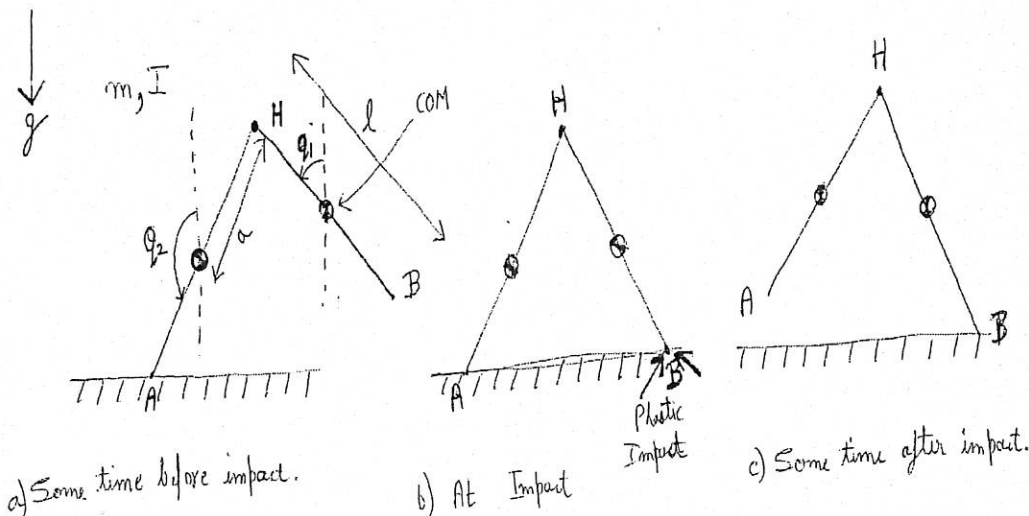 g
m, I
H
q1
l
COM
q2
a
B
A
a) Some time before impact.
H
A
B
Plastic
Impact
b) At Impact
H
A
B
c) Some time after impact.